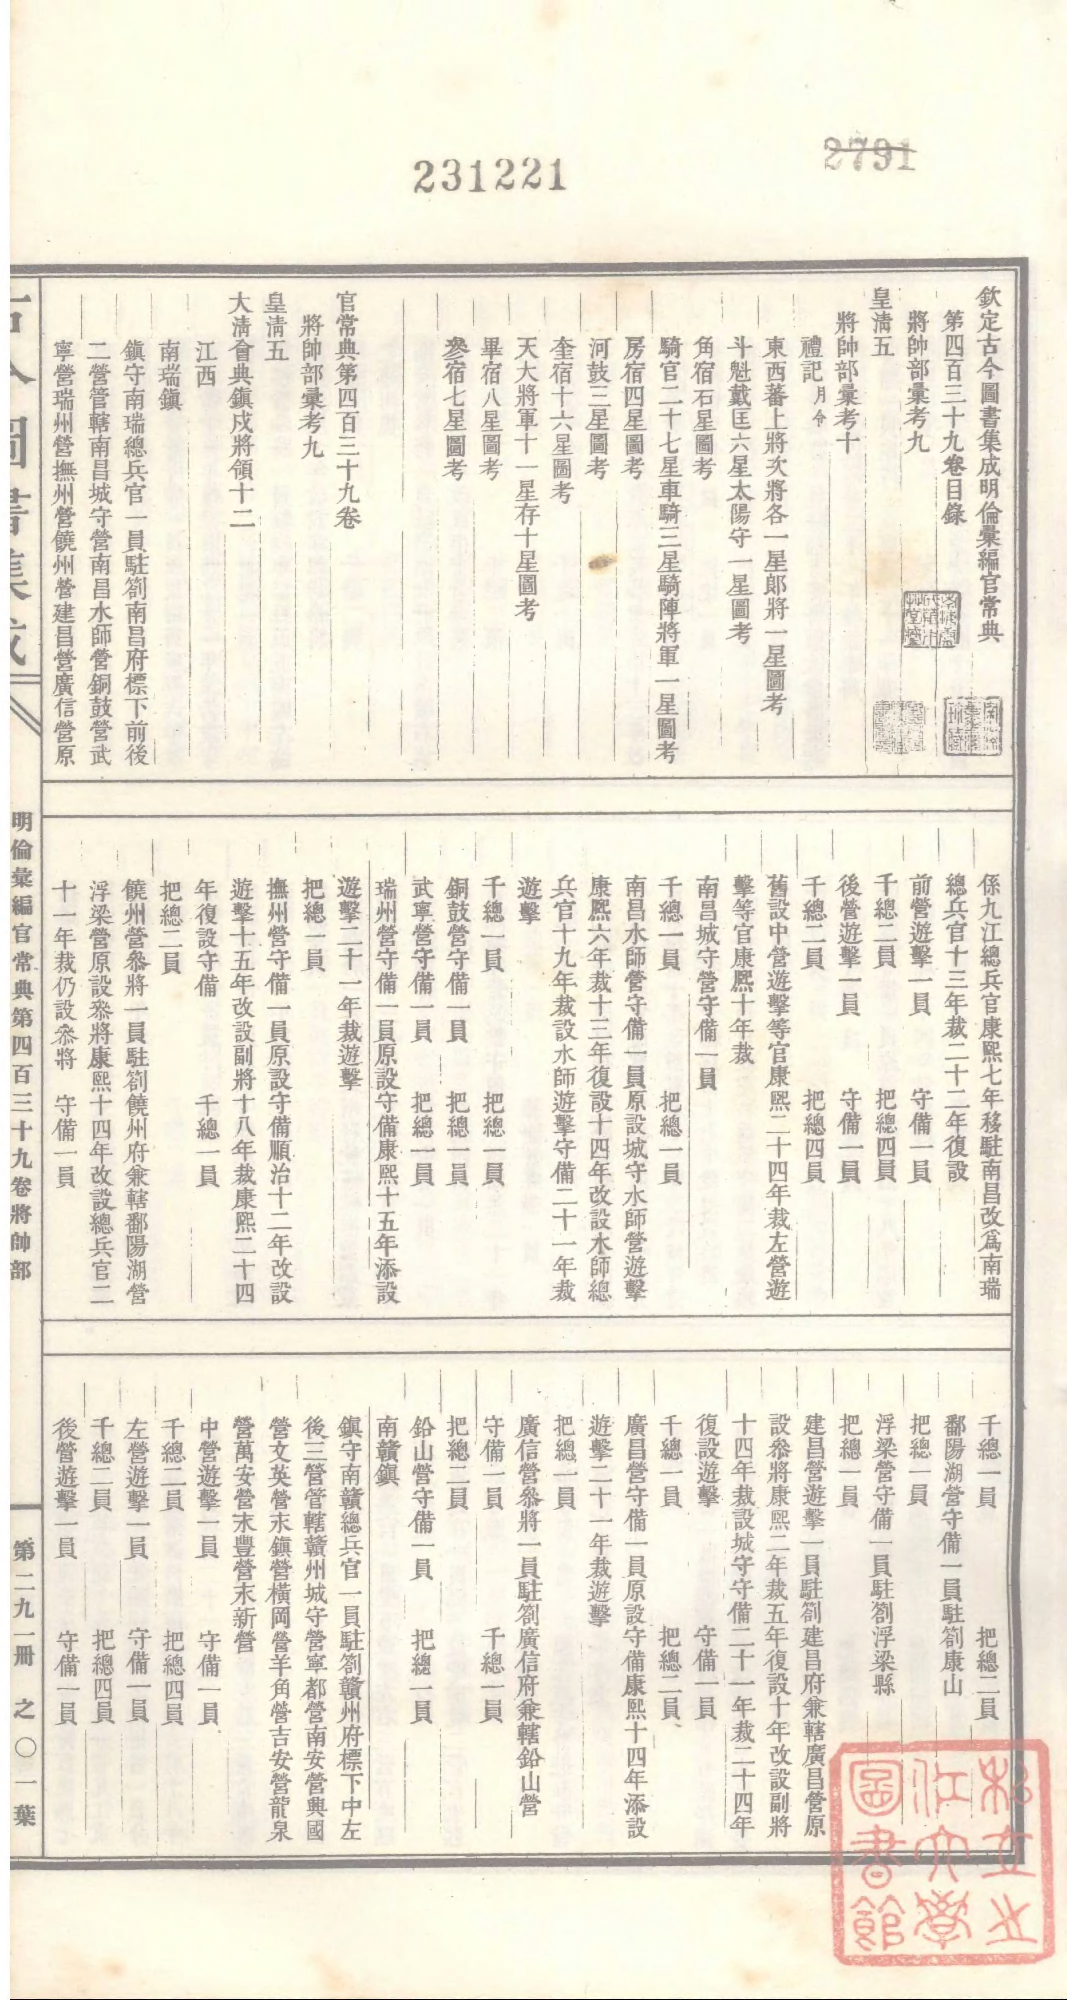 2791
231221
欽定古今圖書集成明倫彙編官常典
第四百三十九卷目錄
將帥部彙考九
皇清五
將帥部彙考十
禮記月令
東西蕃上將次將各一星郎將一星圖考
斗魁戴匡六星太陽守一星圖考
角宿石星圖考
騎官二十七星車騎三星騎陣將軍一星圖考
房宿四星圖考
河鼓三星圖考
奎宿十六星圖考
天大將軍十一星存十星圖考
畢宿八星圖考
參宿七星圖考
官常典第四百三十九卷
將帥部彙考九
皇清五
大清會典鎮戍將領十二
江西
南瑞鎮
鎮守南瑞總兵官一員駐劄南昌府標下前後
二營管轄南昌城守營南昌水師營銅鼓營武
寧營瑞州營撫州營饒州營建昌營廣信營原
係九江總兵官康熙七年移駐南昌改為南瑞
總兵官十三年裁二十二年復設
前營遊擊一員 守備一員
千總二員 把總四員
後營遊擊一員 守備一員
千總二員 把總四員
舊設中營遊擊等官康熙二十四年裁左營遊
擊等官康熙十年裁
南昌城守營守備一員
千總一員 把總一員
南昌水師營守備一員原設城守水師營遊擊
康熙六年裁十三年復設十四年改設水師總
兵官十九年裁設水師遊擊守備二十一年裁
遊擊
千總一員 把總一員
銅鼓營守備一員 把總一員
武寧營守備一員 把總一員
瑞州營守備一員原設守備康熙十五年添設
遊擊二十一年裁遊擊
把總一員
撫州營守備一員原設守備順治十二年改設
遊擊十五年改設副將十八年裁康熙二十四
年復設守備 千總一員
把總二員
饒州營參將一員駐劄饒州府兼轄鄱陽湖營
浮梁營原設參將康熙十四年改設總兵官二
十一年裁仍設參將 守備一員
千總一員 把總二員
鄱陽湖營守備一員駐劄康山
把總一員
浮梁營守備一員駐劄浮梁縣
把總一員
建昌營遊擊一員駐劄建昌府兼轄廣昌營原
設參將康熙二年裁五年復設十年改設副將
十四年裁設城守守備二十一年裁二十四年
復設遊擊 守備一員
千總一員 把總二員
廣昌營守備一員原設守備康熙十四年添設
遊擊二十一年裁遊擊
把總一員
廣信營參將一員駐劄廣信府兼轄鉛山營
守備一員 千總一員
把總二員
鉛山營守備一員 把總一員
南贛鎮
鎮守南贛總兵官一員駐劄贛州府標下中左
後三營管轄贛州城守營寧都營南安營興國
營文英營永鎮營橫岡營羊角營吉安營龍泉
營萬安營永豐營永新營
中營遊擊一員 守備一員
千總二員 把總四員
左營遊擊一員 守備一員
千總二員 把總四員
後營遊擊一員 守備一員
古今圖書集成
明倫彙編官常典第四百三十九卷將帥部
第二九一冊 之〇一葉
松江大學圖書館